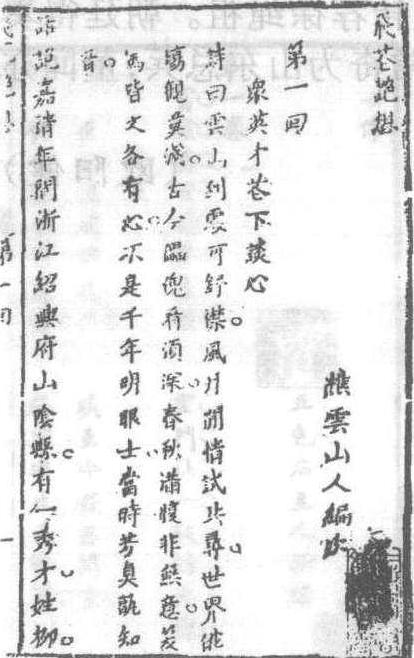 飛花艷想
樵雲山人編次
第一回
衆英才花下談心
詩曰雲山到處可舒襟風月閒情試共尋世界俳
塲觀莫淺古今儡傀看須深春秋滿腹非無意笑
罵皆文各有心不是千年明眼士當時芳臭孰知
音
話說嘉靖年間浙江紹興府山陰縣有一秀才姓柳
第一回